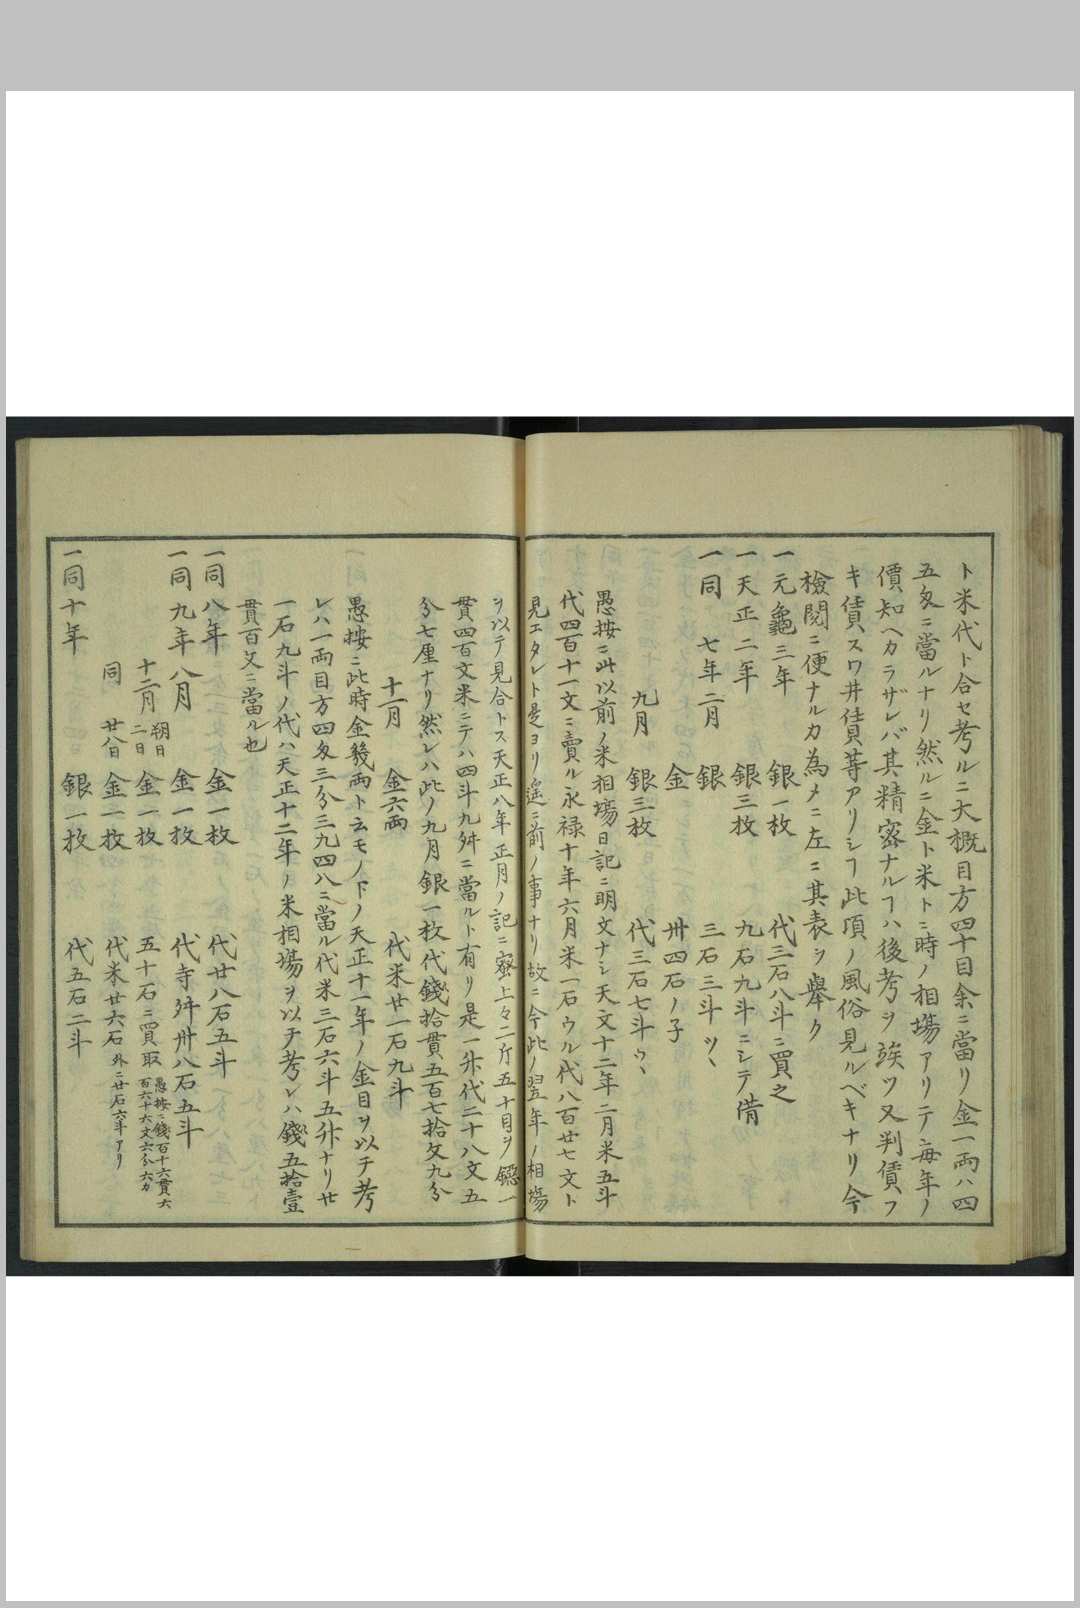 ト米代ト合セ考ルニ大概目方四十目余ニ當リ金一両ハ四
五匁ニ當ルナリ然ルニ金ト米トニ時ノ相場アリテ毎年ノ
價知ヘカラザレバ其精密ナルヿハ後考ヲ竢ツ又判賃フ
キ賃スワ井賃等アリシヿ此頃ノ風俗見ルベキナリ今
檢閱ニ便ナルカ為メニ左ニ其表ヲ擧ク
一元龜三年 銀一枚 代三石八斗ニ買之
一天正二年 銀三枚 九石九斗ニシテ借
一同 七年二月 銀 三石三斗ツヽ
金 卅四石ノ子
九月 銀三枚 代三石七斗ウヽ
愚按ニ此以前ノ米相場日記ニ明文ナシ天文十二年二月米五斗
代四百十一文ニ賣ル永禄十年六月米一石ウル代八百廿七文ト
見エタレト是ヨリ遙ニ前ノ事ナリ故ニ今此ノ翌年ノ相場
ヲ以テ見合トス天正八年正月ノ記ニ蜜上々二斤五十目ヲ鐚一
貫四百文米ニテハ四斗九舛ニ當ルト有リ是一升代二十八文五
分七厘ナリ然レハ此ノ九月銀一枚代錢拾貫五百七拾文九分
十一月 金六両 代米廿一石九斗
愚按ニ此時金幾両ト云モノ下ノ天正十一年ノ金目ヲ以テ考
レハ一両目方四匁三分三九四八ニ當ル代米三石六斗五升ナリ廿
一石九斗ノ代ハ天正十二年ノ米相場ヲ以テ考レハ錢五拾壹
貫百文ニ當ル也
一同八年 金一枚 代廿八石五斗
一同九年八月 金一枚 代寺舛卅八石五斗
十二月 朔日二日 金一枚 五十石ニ買取 愚按ニ錢百十六貫六百六十六文六分六カ
同 廿八日 金一枚 代米廿六石 外ニ廿石六斗アリ
一同十年 銀一枚 代五石二斗